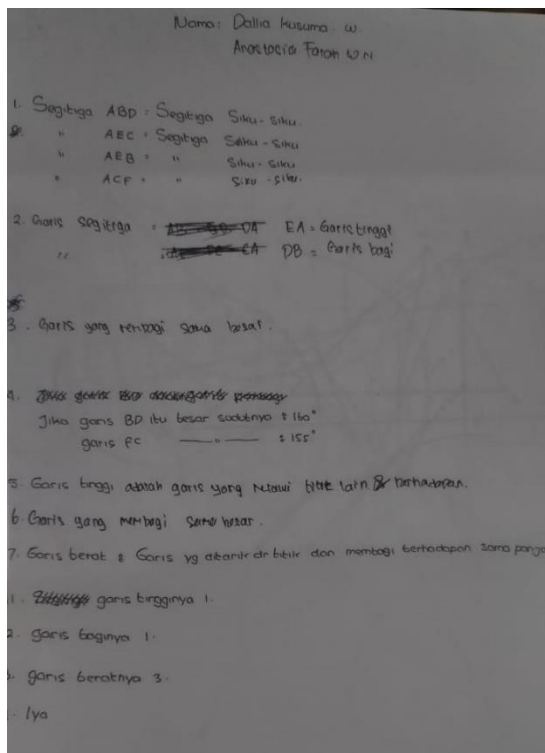 Nama : Dallia Kusuma . W.
Anastacia Farah W N
1. Segitiga ABD = Segitiga Siku - siku.
" AEC = Segitiga Siku - siku
" AEB = " Siku - siku
" ACF = " Siku - siku.
2. Garis segitiga = EA = Garis tinggi
" DB = Garis bagi
3. Garis yang membagi sama besar.
4.
Jika garis BD itu besar sudutnya ± 160°
garis FC —— " —— ± 155°
5. Garis tinggi adalah garis yang melalui titik lain & berhadapan.
6. Garis yang membagi sama besar.
7. Garis berat = Garis yg ditarik dr titik dan membagi berhadapan sama panja
1. garis tingginya 1.
2. garis baginya 1.
3. garis beratnya 3.
. Iya